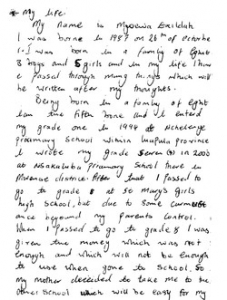 My life.
My name is
I was borne in 1987 on 28th of octobe
r. I was born in a family of eight
3 boys and 5 girls and in my life I hav
e passed through many things which will
be written after my thoughts.
Being born in a family of eight
I am the fifth borne and I enterd
my grade one in 1994 at Nchelenge
Primary School within Luapula province
I wrote my grade seven in 2000
at Primary School there in
province after that I passed to
go to grade 8 at St Marys girls
high school, but due to some cumust
ance beyound my Parents Control.
When I passed to go to grade 8 I was
given the money which was not
enough and which will not be enough
to use when gone to school, so
my mother deceided to take me to the
other school which will be easy for my